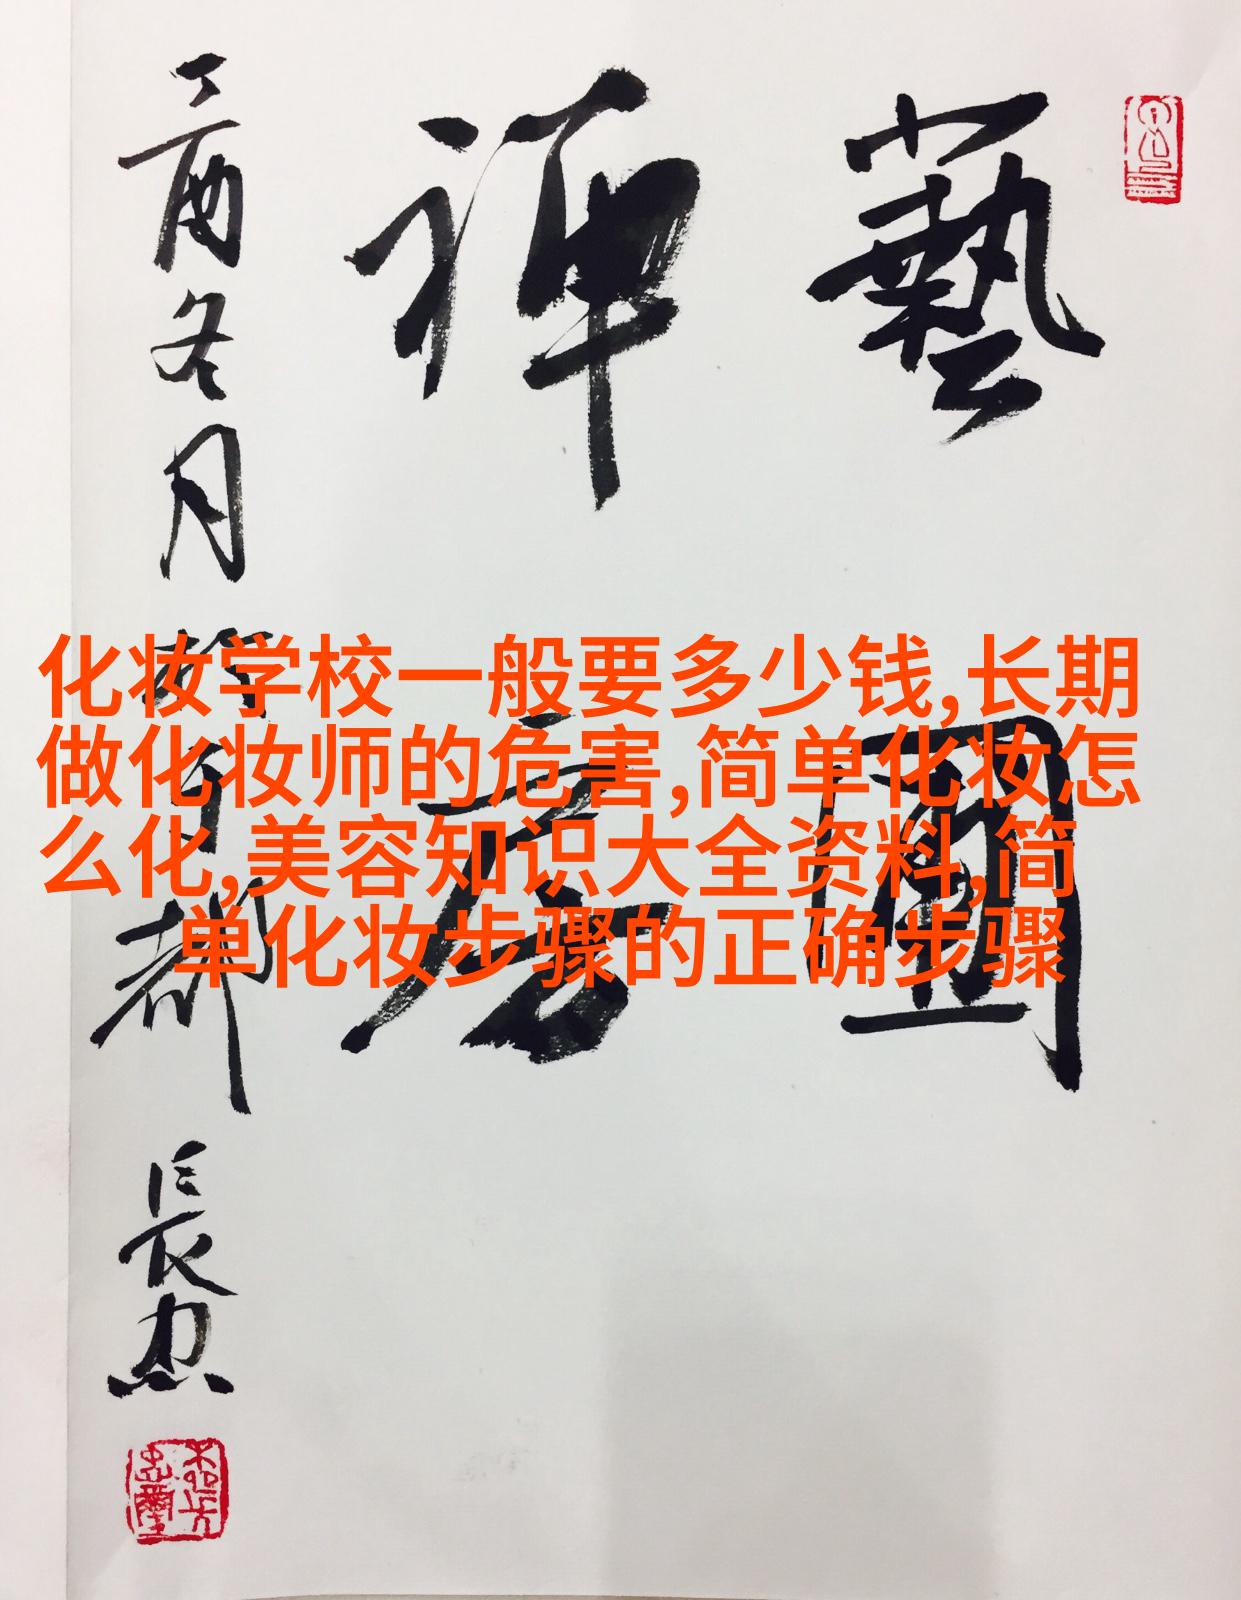 藝圃
禪唐
丁酉冬月
於百都
長忠
化妆学校一般要多少钱,长期
做化妆师的危害,简单化妆怎
么化,美容知识大全资料,简
单化妆步骤的正确步骤